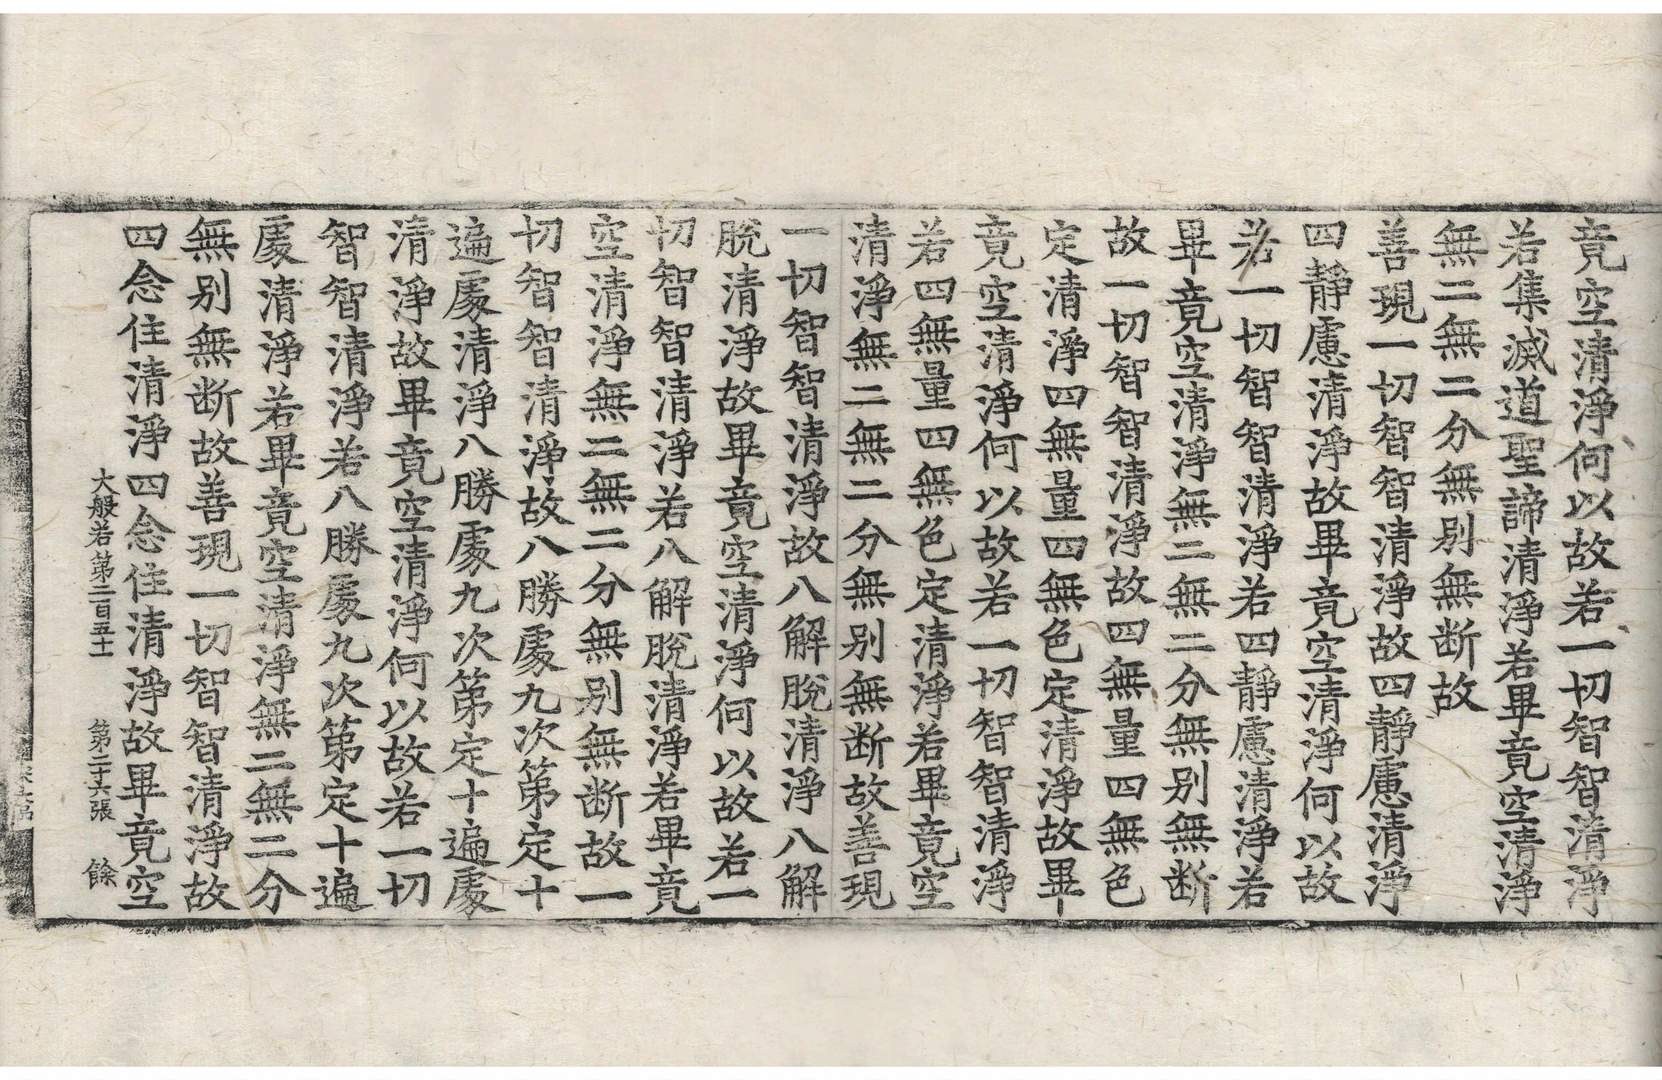 竟空清淨何以故若一切智智清淨
若集滅道聖諦清淨若畢竟空清淨
無二無二分無別無断故
善現一切智智清淨故四靜慮清淨
四靜慮清淨故畢竟空清淨何以故
若一切智智清淨若四靜慮清淨若
畢竟空清淨無二無二分無別無断
故一切智智清淨故四無量四無色
定清淨四無量四無色定清淨故畢
竟空清淨何以故若一切智智清淨
若四無量四無色定清淨若畢竟空
清淨無二無二分無別無断故善現
一切智智清淨故八解脫清淨八解
脫清淨故畢竟空清淨何以故若一
切智智清淨若八解脫清淨若畢竟
空清淨無二無二分無別無断故一
切智智清淨故八勝處九次第定十
遍處清淨八勝處九次第定十遍處
清淨故畢竟空清淨何以故若一切
智智清淨若八勝處九次第定十遍
處清淨若畢竟空清淨無二無二分
無別無断故善現一切智智清淨故
四念住清淨四念住清淨故畢竟空
大般若第二百五十一 第二十六張 餘